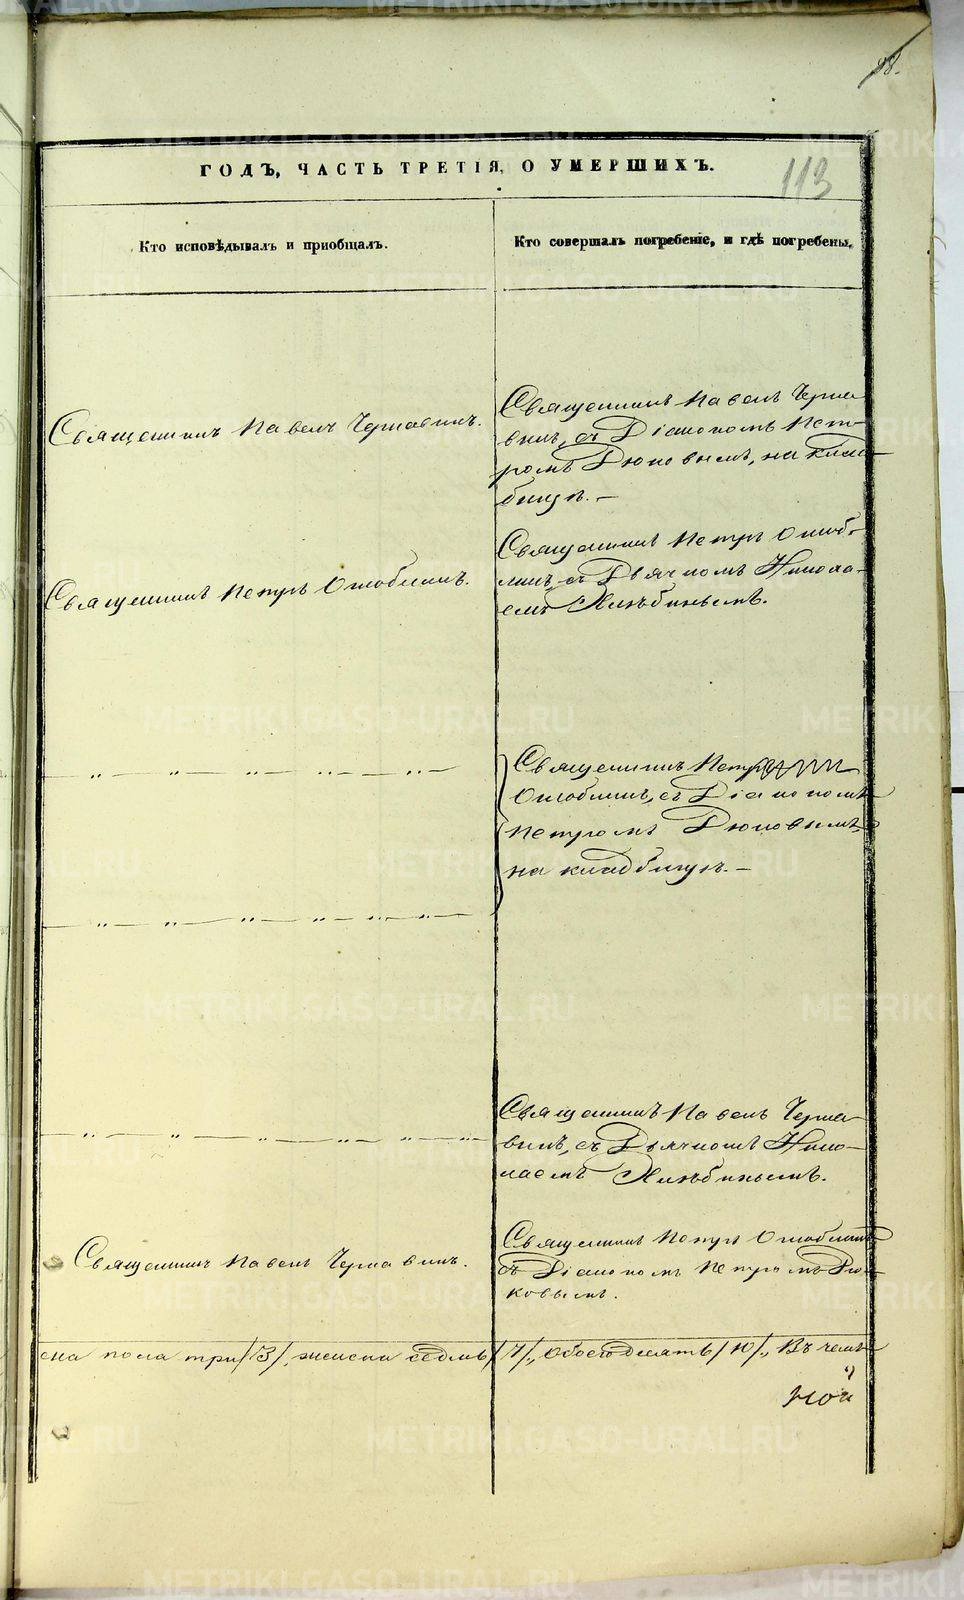 98.
ГОДЪ, ЧАСТЬ ТРЕТІЯ, О УМЕРШИХЪ.
113
Кто исповѣдывалъ и пріобщалъ.
Кто совершалъ погребеніе, и гдѣ погребены.
Священникъ Павелъ Чернавинъ.
Священникъ Павелъ Черна-
винъ, съ Діакономъ Пет-
ромъ Дюковымъ, на клад-
бищѣ. —
Священникъ Петръ Оглоблинъ.
Священникъ Петръ Оглоб-
линъ, съ Дьячкомъ Никола-
емъ Хлѣбинымъ.
— „ — „ — „ — „ — „ —
Священникъ Петръ
Оглоблинъ, съ Діакономъ
Петромъ Дюковымъ,
на кладбищѣ. —
— „ — „ — „ — „ — „ — „ —
— „ — „ — „ — „ — „ — „ —
Священникъ Павелъ Черна-
винъ, съ Дьячкомъ Нико-
лаемъ Хлѣбинымъ.
Священникъ Павелъ Чернавинъ.
Священникъ Петръ Оглоблинъ
съ Діакономъ Петромъ Дю-
ковымъ.
ска пола три /3/, женска седмь /7/, обоего десять /10/, Въ чемъ
METRIKI.GASO-URAL.RU